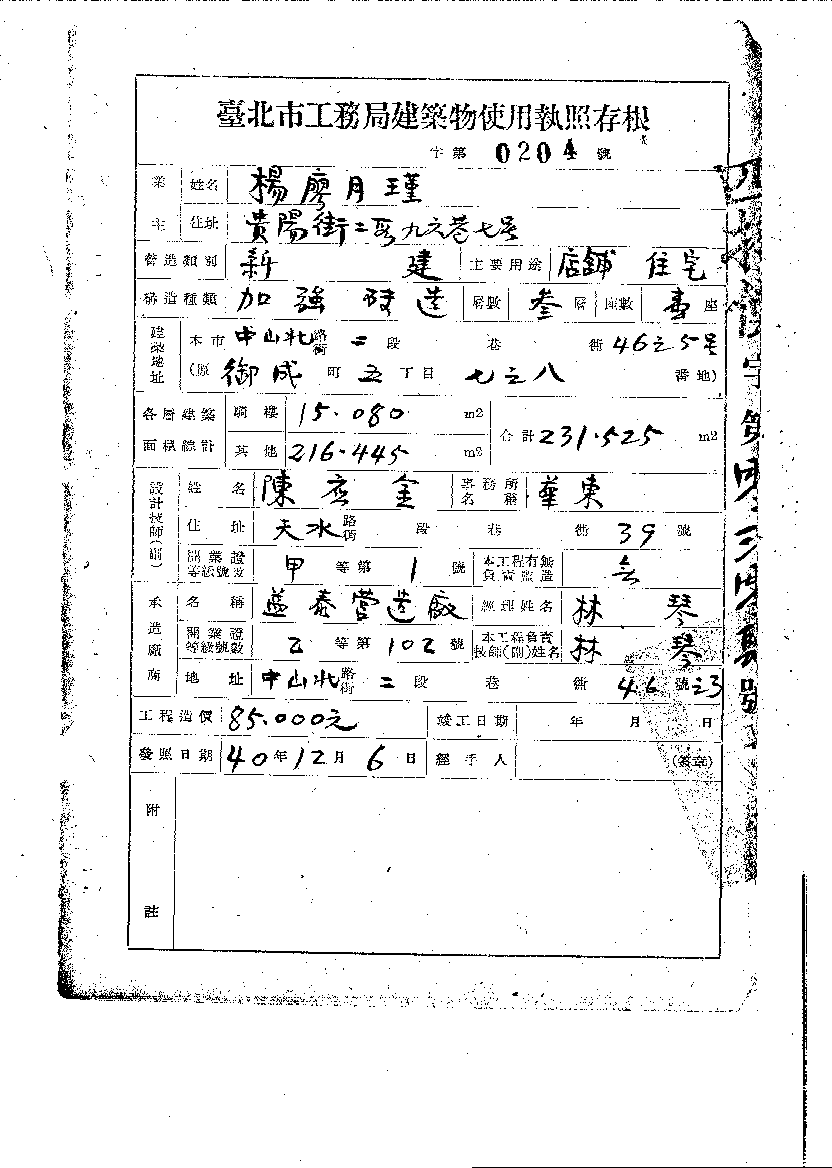 臺北市工務局建築物使用執照存根
字第 0204 號
業主 姓名 楊廖月瑾
住址 貴陽街二段九六巷七号
營造類別 新建 主要用途 店舖 住宅
構造種類 加強磚造 層數 叁 層 座數 壹 座
建築地址 本市 中山北 路街 二 段 巷 街 46之5号
(原 御成 町 五 丁目 七之八 番地)
各層建築面積總計 騎樓 15.080 m2
其他 216.445 m2 合計 231.525 m2
設計技師(副) 姓名 陳 金 事務所名稱 華東
住址 天水 路街 段 巷 街 39 號
開業證等級號數 甲 等第 1 號 本工程有無負責監造 無
承造廠商 名稱 益泰營造廠 經理姓名 林琴
開業證等級號數 乙 等第 102 號 本工程負責技師(副)姓名 林琴
地址 中山北 路街 二 段 巷 街 46 號 之3
工程造價 85.000元 竣工日期 年 月 日
發照日期 40 年 12 月 6 日 經手人 (簽章)
附註
字第 號